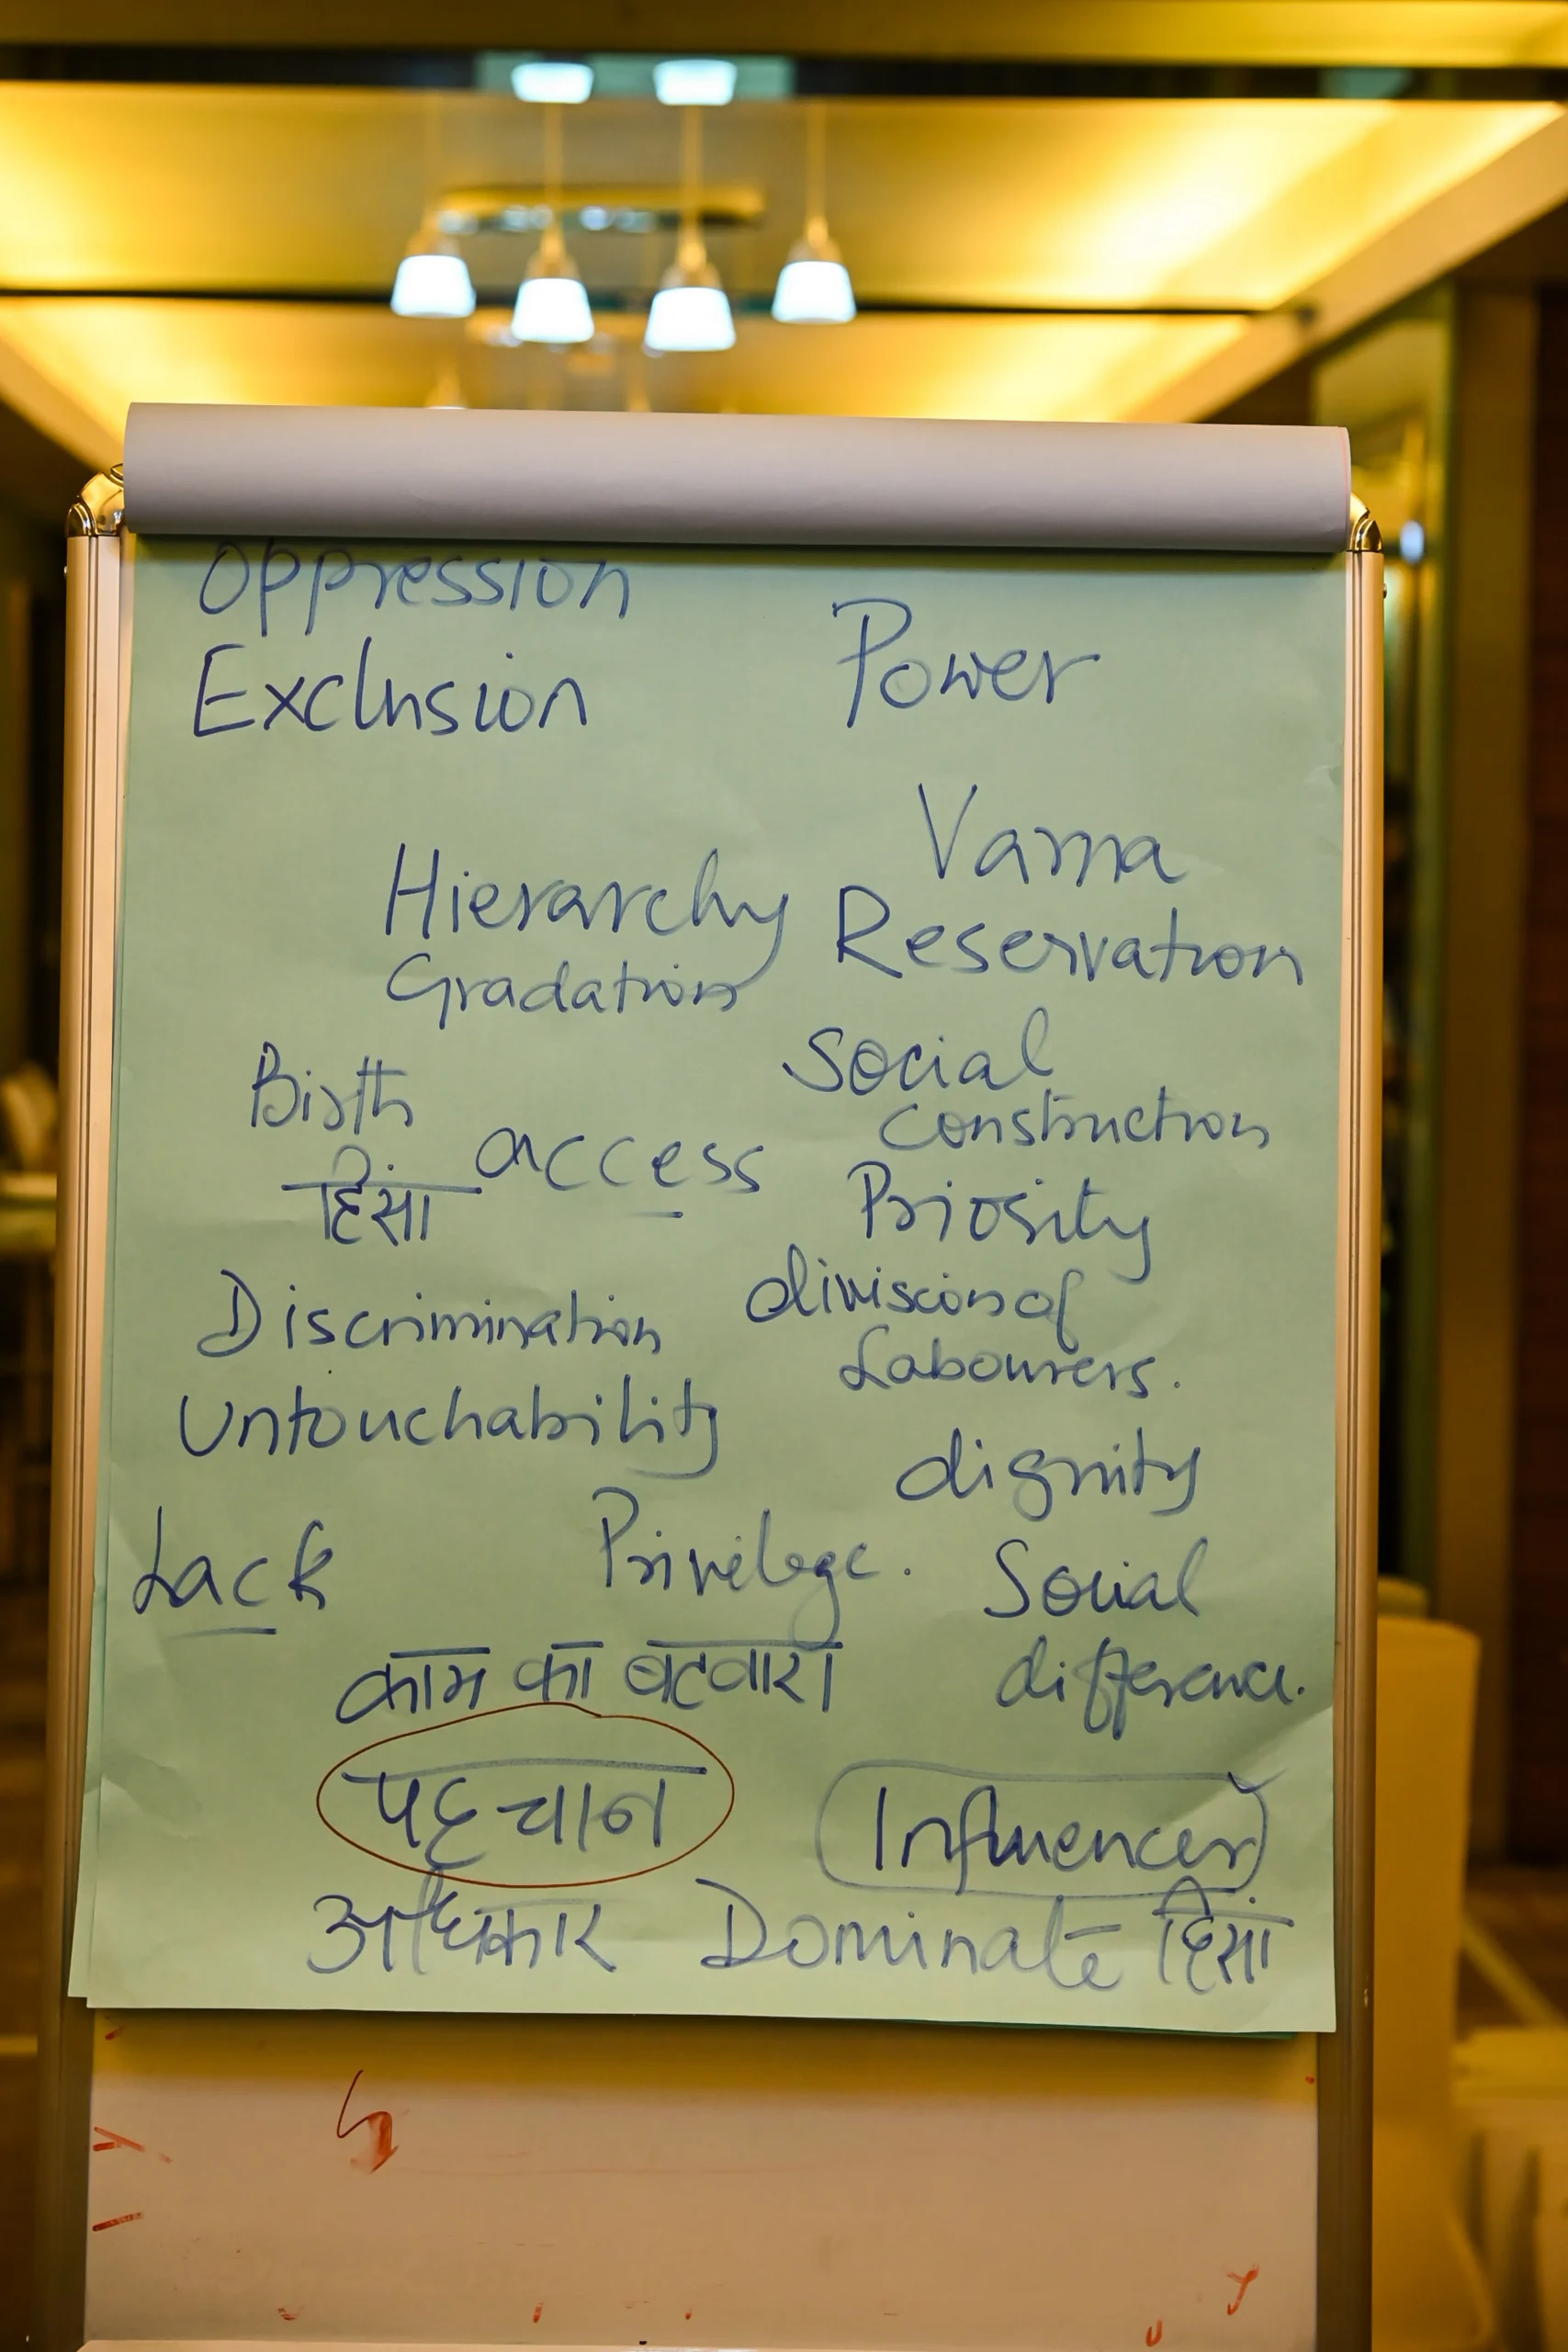 Oppression
Exclusion
Power
Varna
Hierarchy
Reservation
Gradation
Social
Construction
Birth
access
हिंसा
Priority
Discrimination
diviscion of
Labourers.
Untouchability
dignity
Lack
Privilege.
Social
difference.
काम का बटवारा
पहचान
Influencer
अधिकार Dominate हिंसा